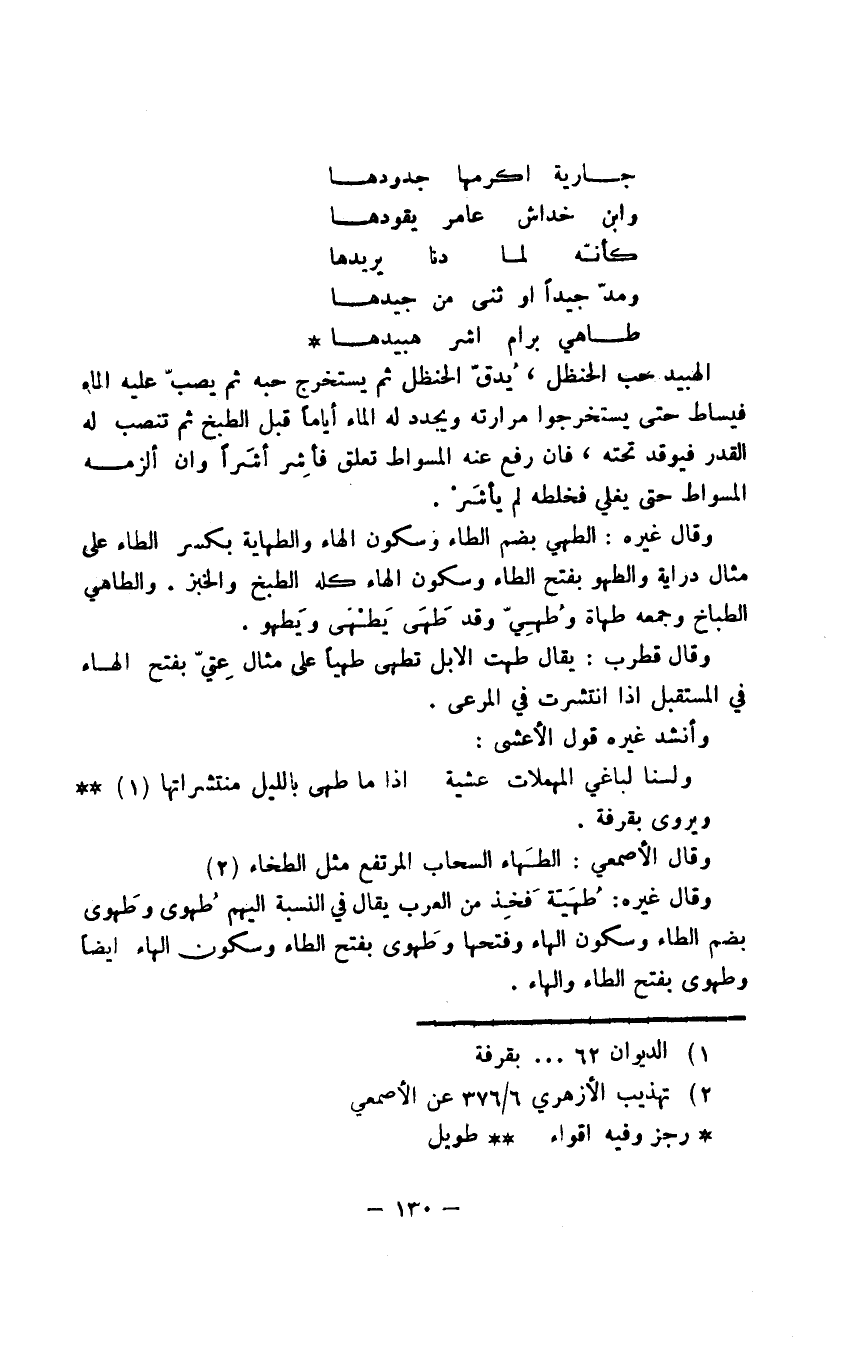 جـــارية اكرمها جدودهـــا
وابن خداش عامر يقودهـــا
كأنـّه لمـا دنا يريدها
ومدّ جيداً او ثنى من جيدهـــا
طـــاهي برام اشر هبيدهـــا *
الهبيد حب الحنظل ، يُدقّ الحنظل ثم يستخرج حبه ثم يصبّ عليه الماء
فيساط حتى يستخرجوا مرارته ويجدد له الماء أياماً قبل الطبخ ثم تنصب له
القدر فيوقد تحته ، فان رفع عنه المسواط تعلق فأشِر أشَراً وان ألزمـــه
المسواط حتى يغلي فخلطه لم يأشَرْ .
وقال غيره : الطهي بضم الطاء وسكون الهاء والطهاية بكسر الطاء على
مثال دراية والطهو بفتح الطاء وسكون الهاء كله الطبخ والخبز . والطاهي
الطباخ وجمعه طهاة وطُهِيّ وقد طَهَى يَطْهَى ويَطهو .
وقال قطرب : يقال طهت الابل تطهى طهياً على مثال عِتيّ بفتح الهـاء
في المستقبل اذا انتشرت في المرعى .
وأنشد غيره قول الأعشى :
ولسنا لباغي المهملات عشية اذا ما طهى بالليل منتشراتها (١) **
ويروى بقرفة .
وقال الأصمعي : الطَهاء السحاب المرتفع مثل الطخاء (٢)
وقال غيره: طُهَيَّة فَخِذ من العرب يقال في النسبة اليهم طُهوى وطَهوى
بضم الطاء وسكون الهاء وفتحها وطَهوى بفتح الطاء وسكون الهاء ايضاً
وطهوى بفتح الطاء والهاء .
١) الديوان ٦٢ ... بقرفة
٢) تهذيب الأزهري ٣٧٦/٦ عن الأصمعي
* رجز وفيه اقواء ** طويل
— ١٣٠ —